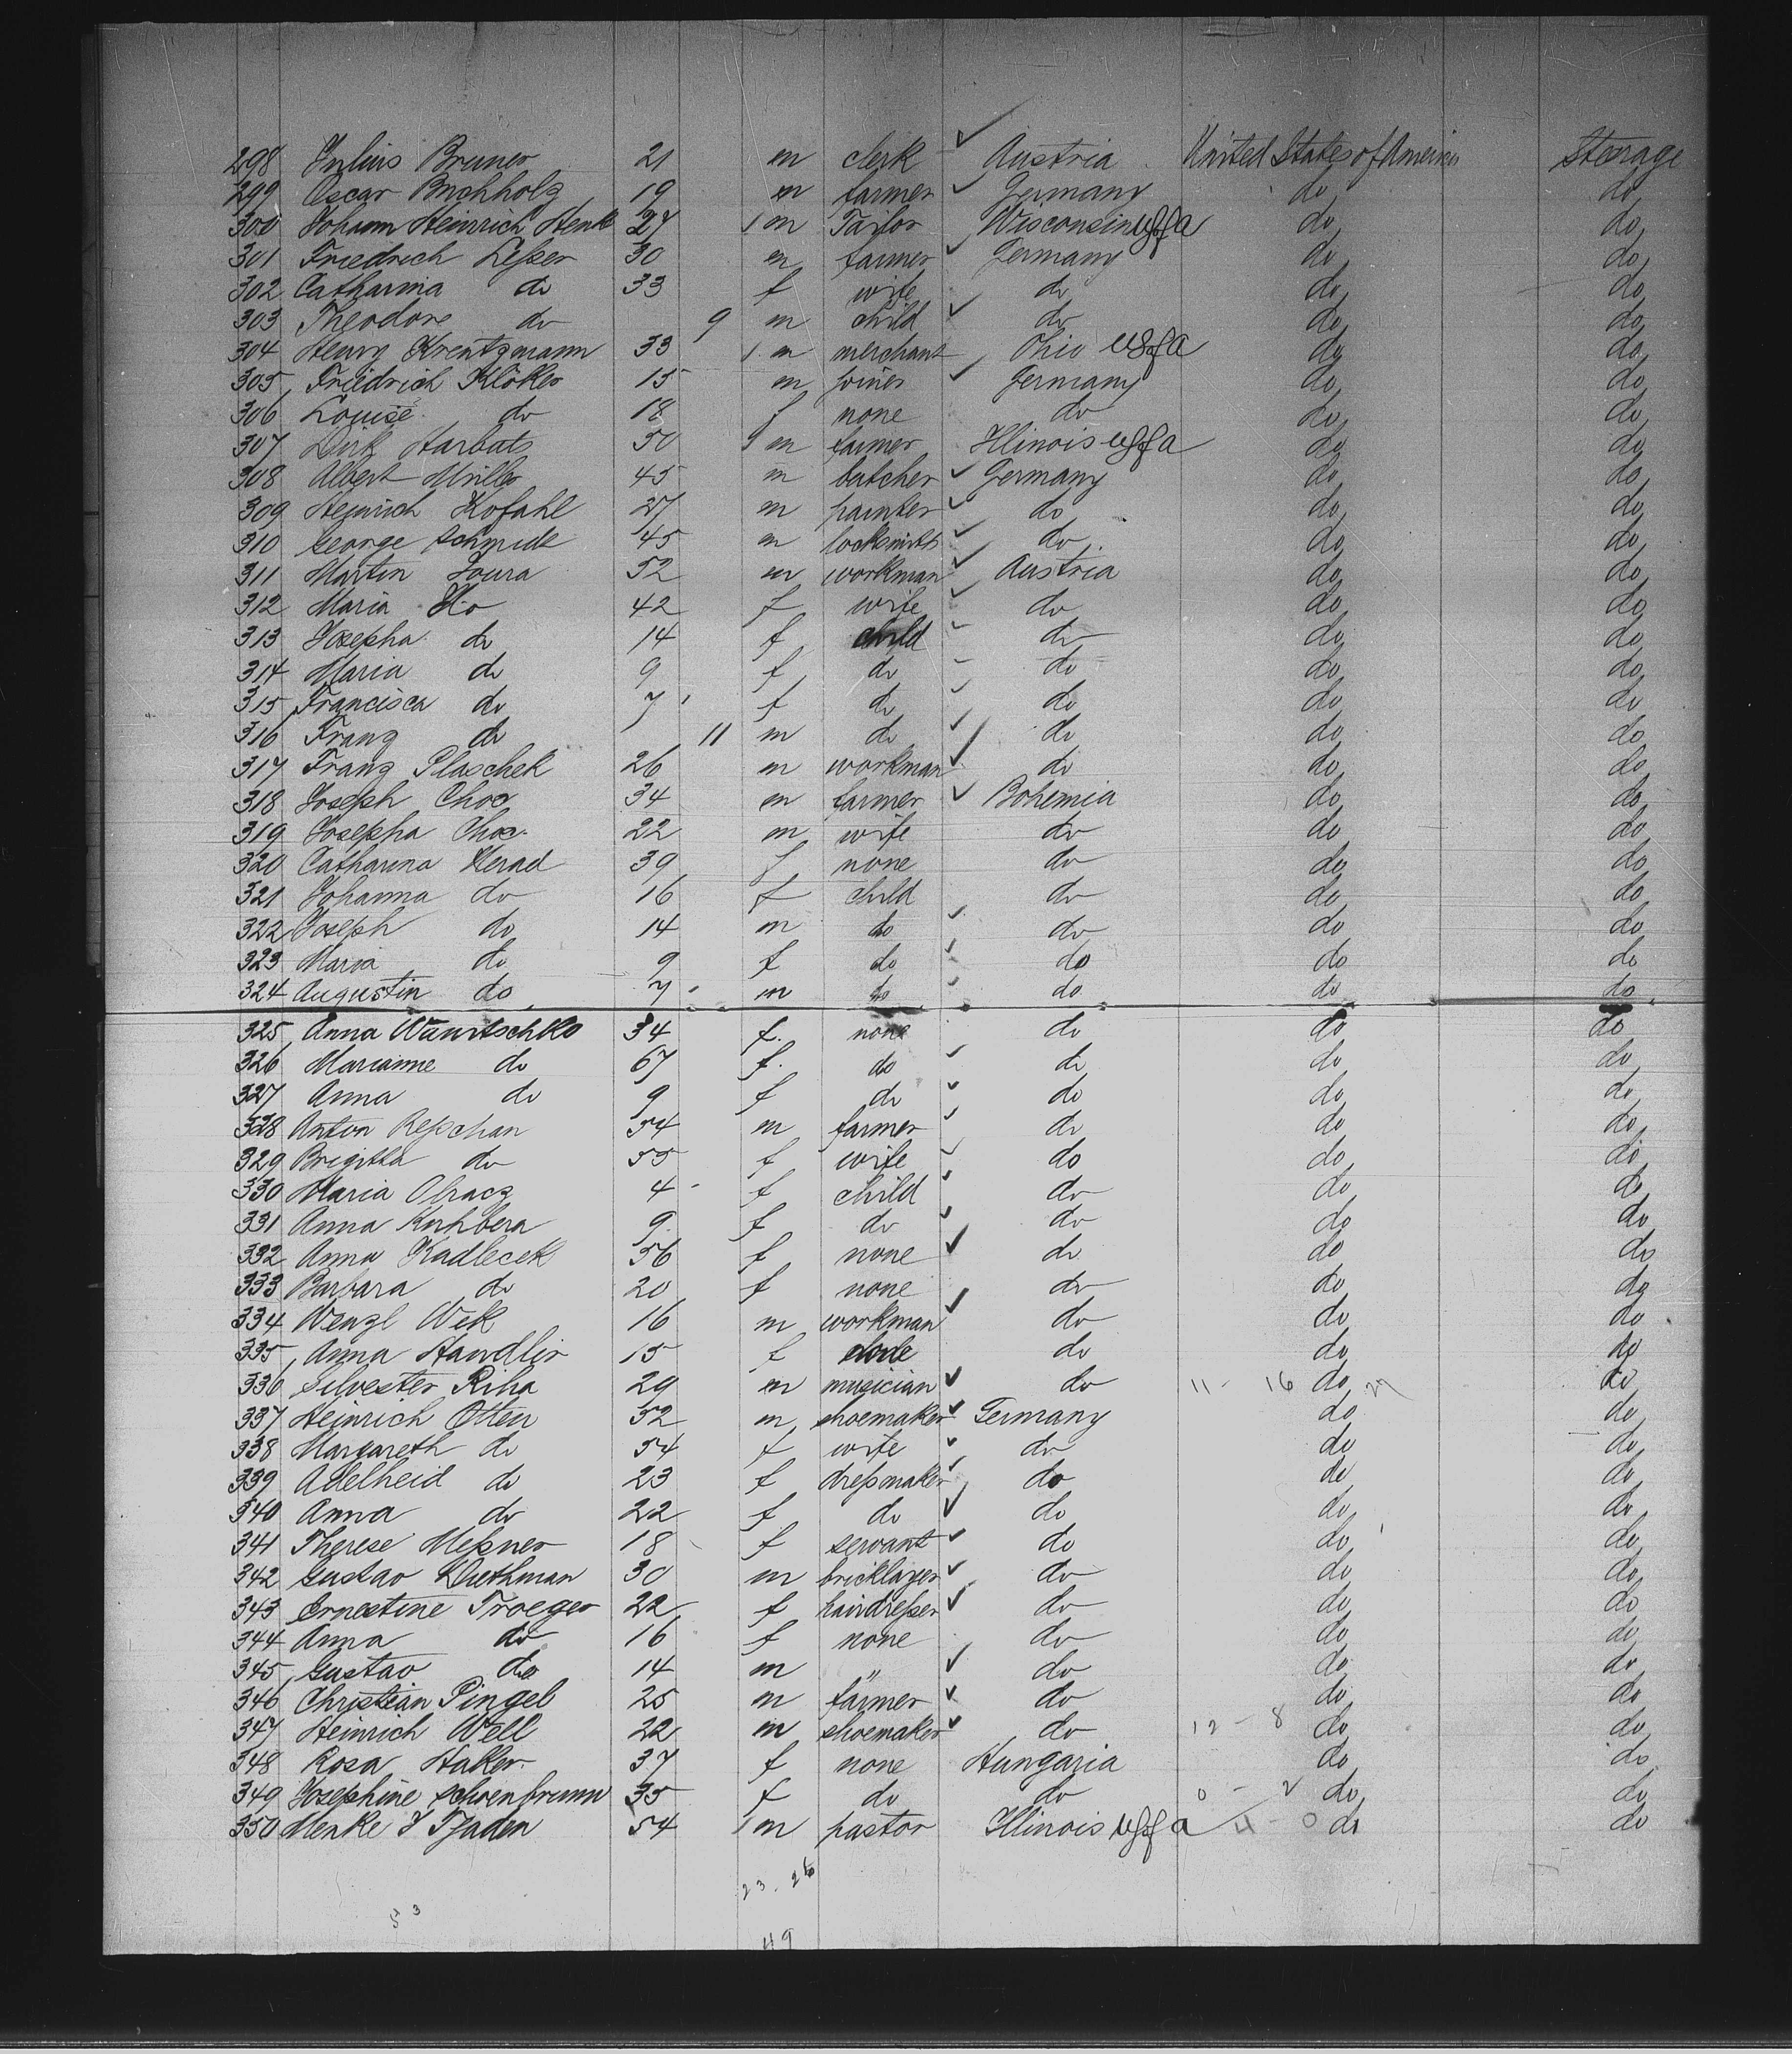 298 Julius Bruner 21 m clerk ✓ Austria United States of America Steerage
299 Oscar Buchholz 19 m farmer ✓ Germany do do
300 Johann Heinrich Henke 27 1 m Tailor Wisconsin USofA do do
301 Friedrich Leßer 30 m farmer ✓ Germany do do
302 Catharina do 33 f wife do do do
303 Theodore do 9 m child ✓ do do do
304 Henry Krentzmann 33 1 m merchant Ohio USofA do do
305 Friedrich Klöker 15 m joiner ✓ Germany do do
306 Louise do 18 f none do do do
307 Dirk Harbats 50 1 m farmer Illinois USofA do do
308 Albert Miller 45 m butcher ✓ Germany do do
309 Heinrich Kofahl 27 m painter ✓ do do do
310 George Schmidt 45 m locksmith ✓ do do do
311 Martin Joura 52 m workman ✓ Austria do do
312 Maria do 42 f wife ✓ do do do
313 Josepha do 14 f child ✓ do do do
314 Maria do 9 f do ✓ do do do
315 Francisca do 7 f do ✓ do do do
316 Franz do 11 m do ✓ do do do
317 Franz Plaschek 26 m workman ✓ do do do
318 Joseph Choc 34 m farmer ✓ Bohemia do do
319 Josepha Choc 22 m wife do do do
320 Catharina Herad 39 f none do do do
321 Johanna do 16 f child do do do
322 Joseph do 14 m do ✓ do do do
323 Maria do 9 f do ✓ do do do
324 Augustin do 7 m do ✓ do do do
325 Anna Wawrtschko 34 f. none do do do
326 Marianne do 67 f. do ✓ do do do
327 Anna do 9 f do ✓ do do do
328 Anton Reßchan 54 m farmer ✓ do do do
329 Brigitta do 55 f wife ✓ do do do
330 Maria 4 f child ✓ do do do
331 Anna 9 f do ✓ do do do
332 Anna Kadlecek 56 f none ✓ do do do
333 Barbara do 20 f none do do do
334 Wenzl Wek 16 m workman ✓ do do do
335 Anna Handlir 15 f do do do
336 Silvester Riha 29 m musician ✓ do 11 - 16 do do
337 Heinrich Otten 52 m shoemaker ✓ Germany do do
338 Margareth do 54 f wife ✓ do do do
339 Adelheid do 23 f dreßmaker ✓ do do do
340 Anna do 22 f do ✓ do do do
341 Therese Meßner 18 f servant ✓ do do do
342 Gustav Luethman 30 m bricklayer ✓ do do do
343 Ernestine Troeger 22 f hairdreßer ✓ do do do
344 Anna do 16 f none do do do
345 Gustav do 14 m " ✓ do do do
346 Christian Pingel 25 m farmer ✓ do do do
347 Heinrich Well 22 m shoemaker ✓ do 12 - 8 do do
348 Rosa Haker 37 f none Hungaria do do
349 Josephine Schoenbrunn 35 f do do 0 - 2 do do
350 Menke J Tjaden 54 1 m pastor Illinois USofA 4 - 0 do do
23. 26
53
49